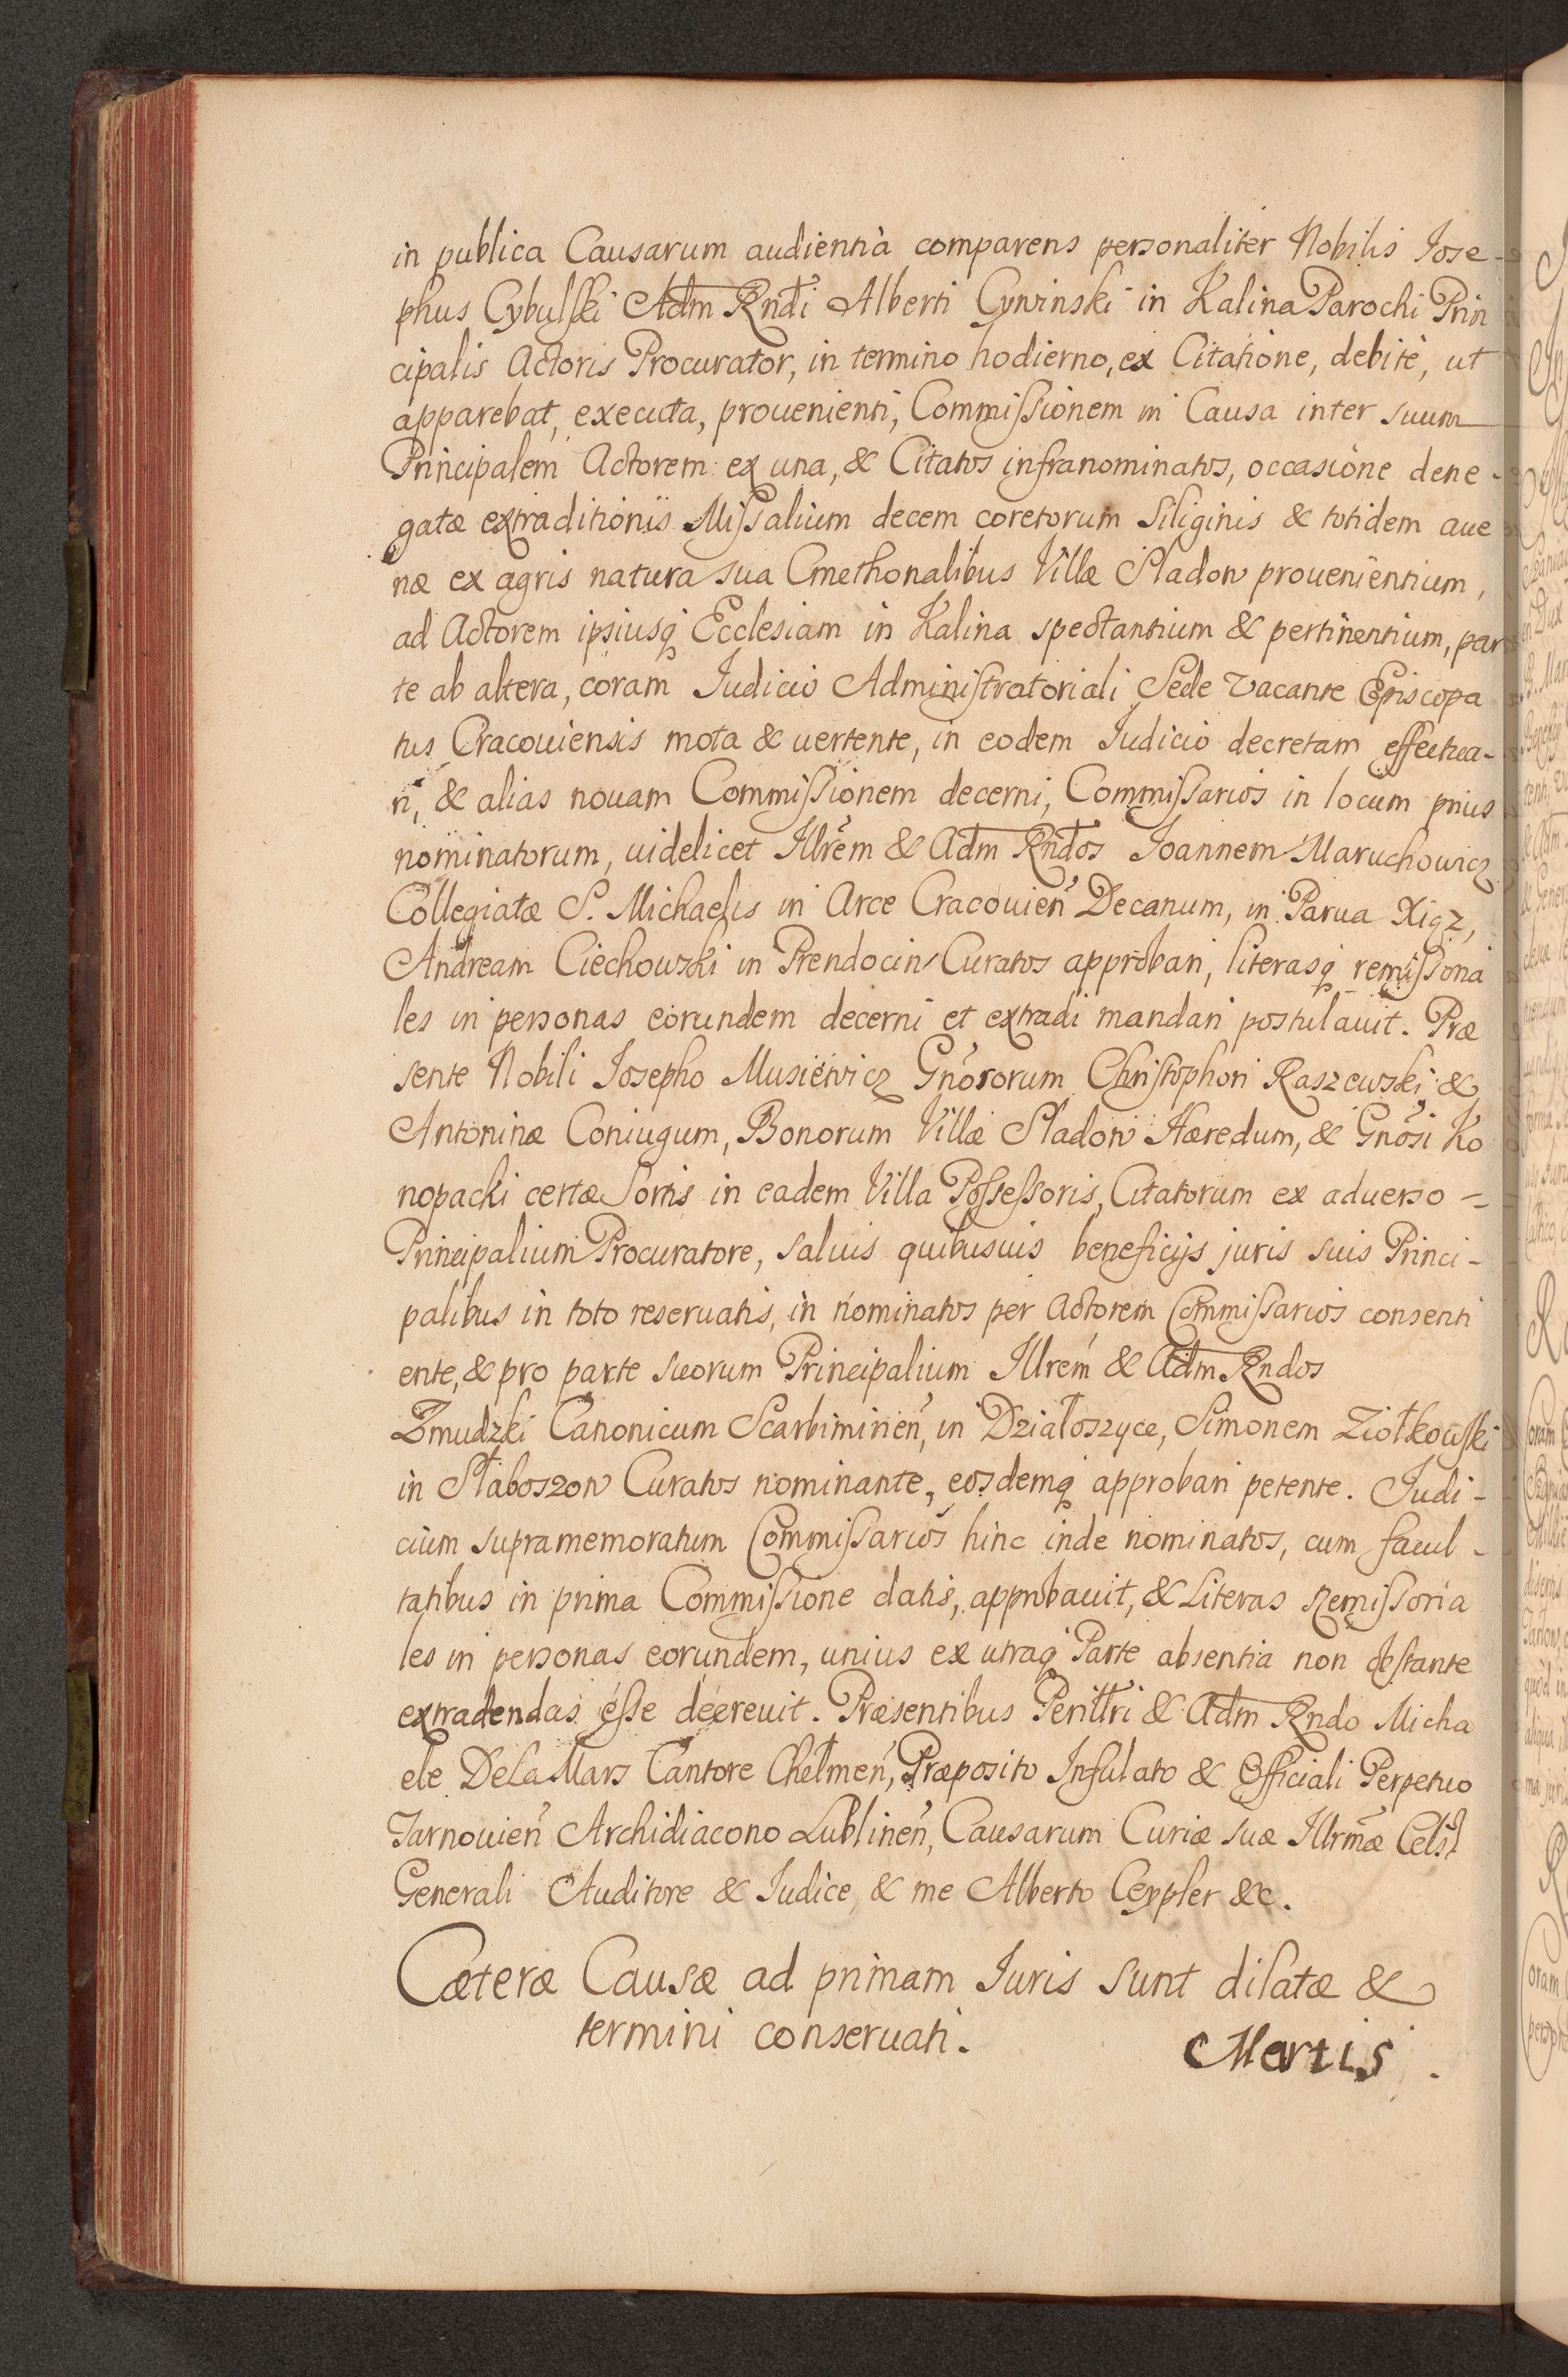 in publica Causarum audientia comparens personaliter Nobilis Jose-
phus Cybulski Adm Rndi Alberti Cywinski in Kalina Parochi Prin
cipalis Actoris Procurator, in termino hodierno, ex Citatione, debitè, ut
apparebat, executa, prouenienti, Commissionem in Causa inter suum
Principalem Actorem ex una, & Citatos infranominatos, occasione dene-
gatæ extraditionis Missalium decem coretorum Siliginis & totidem aue
næ ex agris natura sua Cmethonalibus Villæ Sladow prouenientium,
ad Actorem ipsiusq Ecclesiam in Kalina spectantium & pertinentium, par
te ab altera, coram Judicio Administratoriali Sede vacante Episcopa
tus Cracouiensis mota & uertente, in eodem Judicio decretam effectua-
ri, & alias nouam Commissionem decerni, Commissarios in locum prius
nominatorum, uidelicet Illrem & Adm Rndos Joannem Maruchowicz
Collegiatæ S. Michaelis in Arce Cracouien Decanum, in Parua Xigz,
Andream Ciechowski in Prendocin Curatos approbari, literasq remissoria
les in personas eorundem decerni et extradi mandari postulauit. Præ
sente Nobili Josepho Musiewicz Gnosorum Christophori Raszewski &
Antoninæ Coniugum, Bonorum Villæ Sladow Hæredum, & Gnosi Ko
nopacki certæ Sortis in eadem Villa Possessoris, Citatorum ex aduerso =
Principalium Procuratore, saluis quibusuis beneficijs juris suis Princi-
palibus in toto reseruatis, in nominatos per Actorem Commissarios consenti
ente, & pro parte suorum Principalium Illrem & Adm Rndos
Zmudzki Canonicum Scarbimirien, in Działoszyce, Simonem Ziołkowski
in Słaboszow Curatos nominante, eosdemq approbari petente. Judi-
cium supramemoratum Commissarios hinc inde nominatos, cum facul-
tatibus in prima Commissione datis, approbauit, & Literas Remissoria
les in personas eorundem, unius ex utraq Parte absentia non obstante
extradendas esse decreuit. Præsentibus Perillri & Adm Rndo Micha
ele DeLaMars Cantore Chelmen, Præposito Infulato & Officiali Perpetuo
Tarnouien Archidiacono Lublinen, Causarum Curiæ suæ Illrmæ Cels
Generali Auditore & Judice, & me Alberto Ceypler &c.
Cæteræ Causæ ad primam Juris sunt dilatæ &
termini conseruati.
Martis.